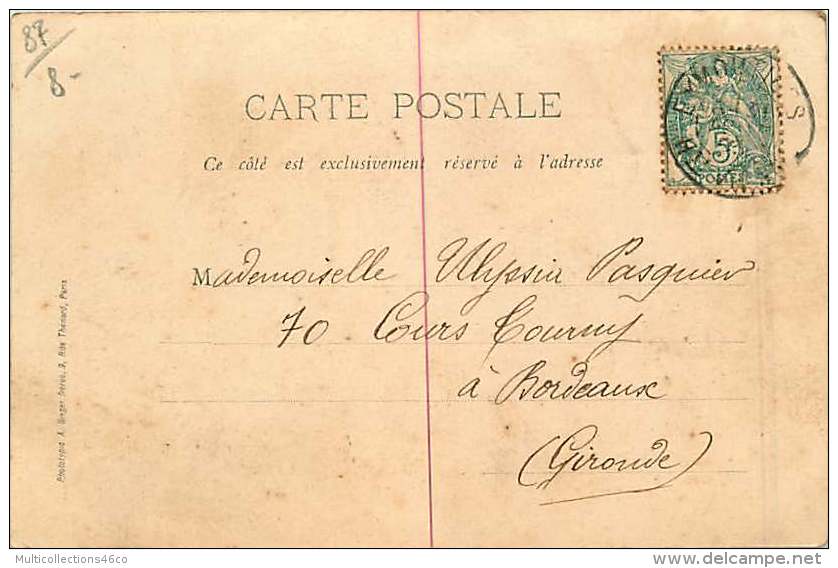 87
8-
CARTE POSTALE
Ce côté est exclusivement réservé à l'adresse
EYMOUTIERS
5
POSTES
Mademoiselle Ulyssia Pasquier
70 Cours Tourny
à Bordeaux
(Gironde)
Phototypie A. Berger frères, 9, Rue Thénard, Paris
Multicollections46co
www.delcampe.net